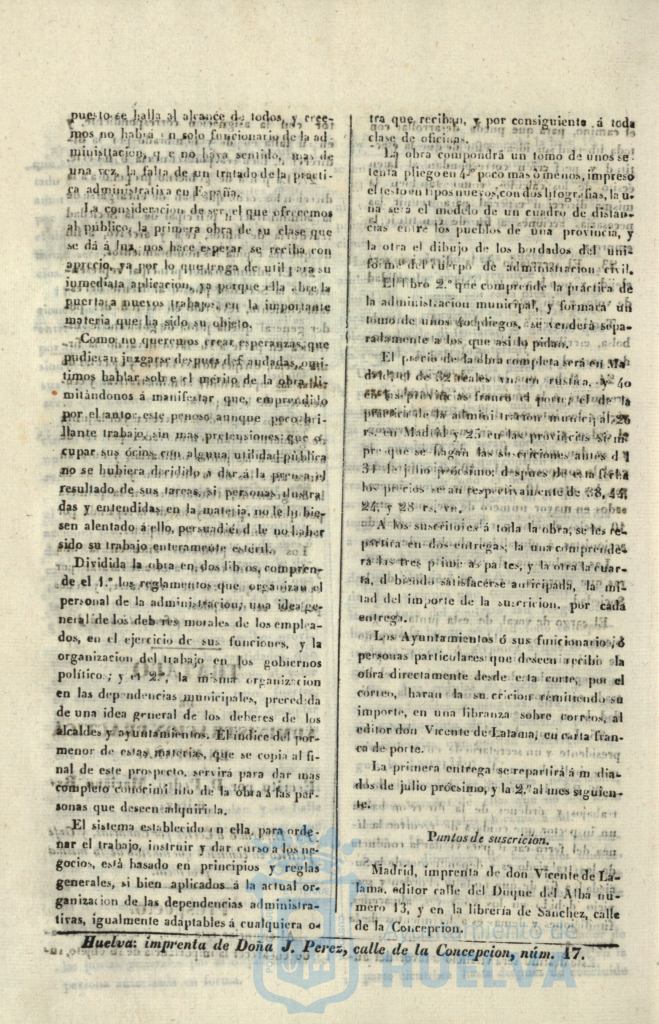 puesto se halla al alcance de todos, y cree-
mos no habrá un solo funcionario de la ad-
ministracion, que no haya sentido, mas de
una vez, la falta de un tratado de la practi-
ca administrativa en España.
La consideracion de ser, el que ofrecemos
al público, la primera obra de su clase que
se dá á luz, nos hace esperar se reciba con
aprecio, ya por lo que tenga de util para su
inmediata aplicacion, ya porque ella abre la
puerta á nuevos trabajos, en la importante
materia que ha sido su objeto.
Como no queremos crear esperanzas, que
pudieran juzgarse despues defraudadas, omi-
timos hablar sobre el mérito de la obra, li-
mitándonos á manifestar que, emprendido
por el autor este penoso aunque poco bri-
llante trabajo, sin mas pretensiones que o-
cupar sus ócios con alguna utilidad pública
no se hubiera decidido a dar á la prensa el
resultado de sus tareas, si personas ilustra-
das y entendidas en la materia, no le hubie-
sen alentado á ello, persuadiéndole no haber
sido su trabajo enteramente estéril.
Dividida la obra en dos libros, compren-
de el 1.º los reglamentos que organizan el
personal de la administracion; una idea ge-
neral de los deberes morales de los emplea-
dos, en el ejercicio de sus funciones, y la
organizacion del trabajo en los gobiernos
políticos; y el 2.º, la misma organizacion
en las dependencias municipales, precedida
de una idea general de los deberes de los
alcaldes y ayuntamientos. El índice del por-
menor de estas materias, que se copia al fi-
nal de este prospecto, servirá para dar mas
completo conocimiento de la obra á las per-
sonas que deseen adquirirla.
El sistema establecido en ella, para orde-
nar el trabajo, instruir y dar curso a los ne-
gocios, está basado en principios y reglas
generales, si bien aplicados á la actual or-
ganizacion de las dependencias administra-
tivas, igualmente adaptables á cualquiera o-
tra que reciban, y por consiguiente á toda
clase de oficinas.
La obra compondrá un tomo de unos se-
tenta pliegos en 4.º poco mas ó menos, impreso
el testo en tipos nuevos, con dos litografías, la u-
na será el modelo de un cuadro de distan-
cias entre los pueblos de una provincia, y
la otra el dibujo de los bordados del uni-
forme del cuerpo de administracion civil.
El libro 2.º que comprende la práctica de
la administracion municipal, y formará un
tomo de unos 40 pliegos, se venderá sepa-
radamente a los que asi lo pidan.
El precio de la obra completa será en Ma-
drid el de 32 reales vn. en rústica, y 40
en las provincias franco el porte; el de la
practica de la administracion municipal, 20
rs. en Madrid y 25 en las provincias siem-
pre que se hagan las suscriciones antes del
31 de julio prócsimo: despues de esta fecha
los precios serán respectivamente de 38, 44,
24, y 28 rs. vn.
A los suscritores á toda la obra, se les re-
partirá en dos entregas; la una comprende-
rá las tres primeras partes, y la otra la cuar-
ta, debiendo satisfacerse anticipada, la mi-
tad del importe de la suscricion, por cada
entrega.
Los Ayuntamientos ó sus funcionarios, ó
personas particulares que deseen recibir la
obra directamente desde esta corte, por el
correo, haran la suscricion remitiendo su
importe, en una libranza sobre correos, al
editor don Vicente de Lalama, en carta fran-
ca de porte.
La primera entrega se repartirá á media-
dos de julio prócsimo, y la 2.ª al mes siguien-
te.
Puntos de suscricion.
Madrid, imprenta de don Vicente de La-
lama, editor calle del Duque del Alba nú-
mero 13, y en la librería de Sanchez, calle
de la Concepcion.
Huelva: imprenta de Doña J. Perez, calle de la Concepcion, núm. 17.
Ayuntamiento de
HUELVA